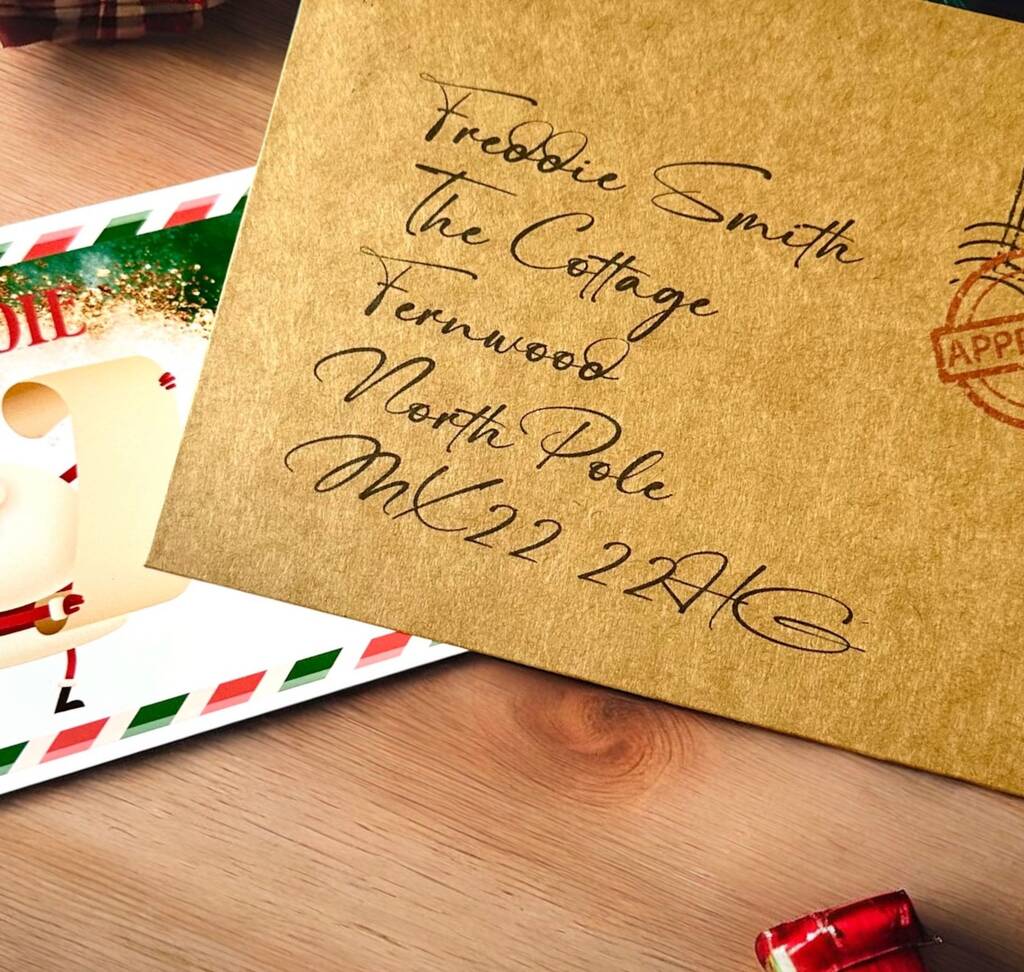 Freddie Smith
The Cottage
Fernwood
North Pole
MX22 22HG